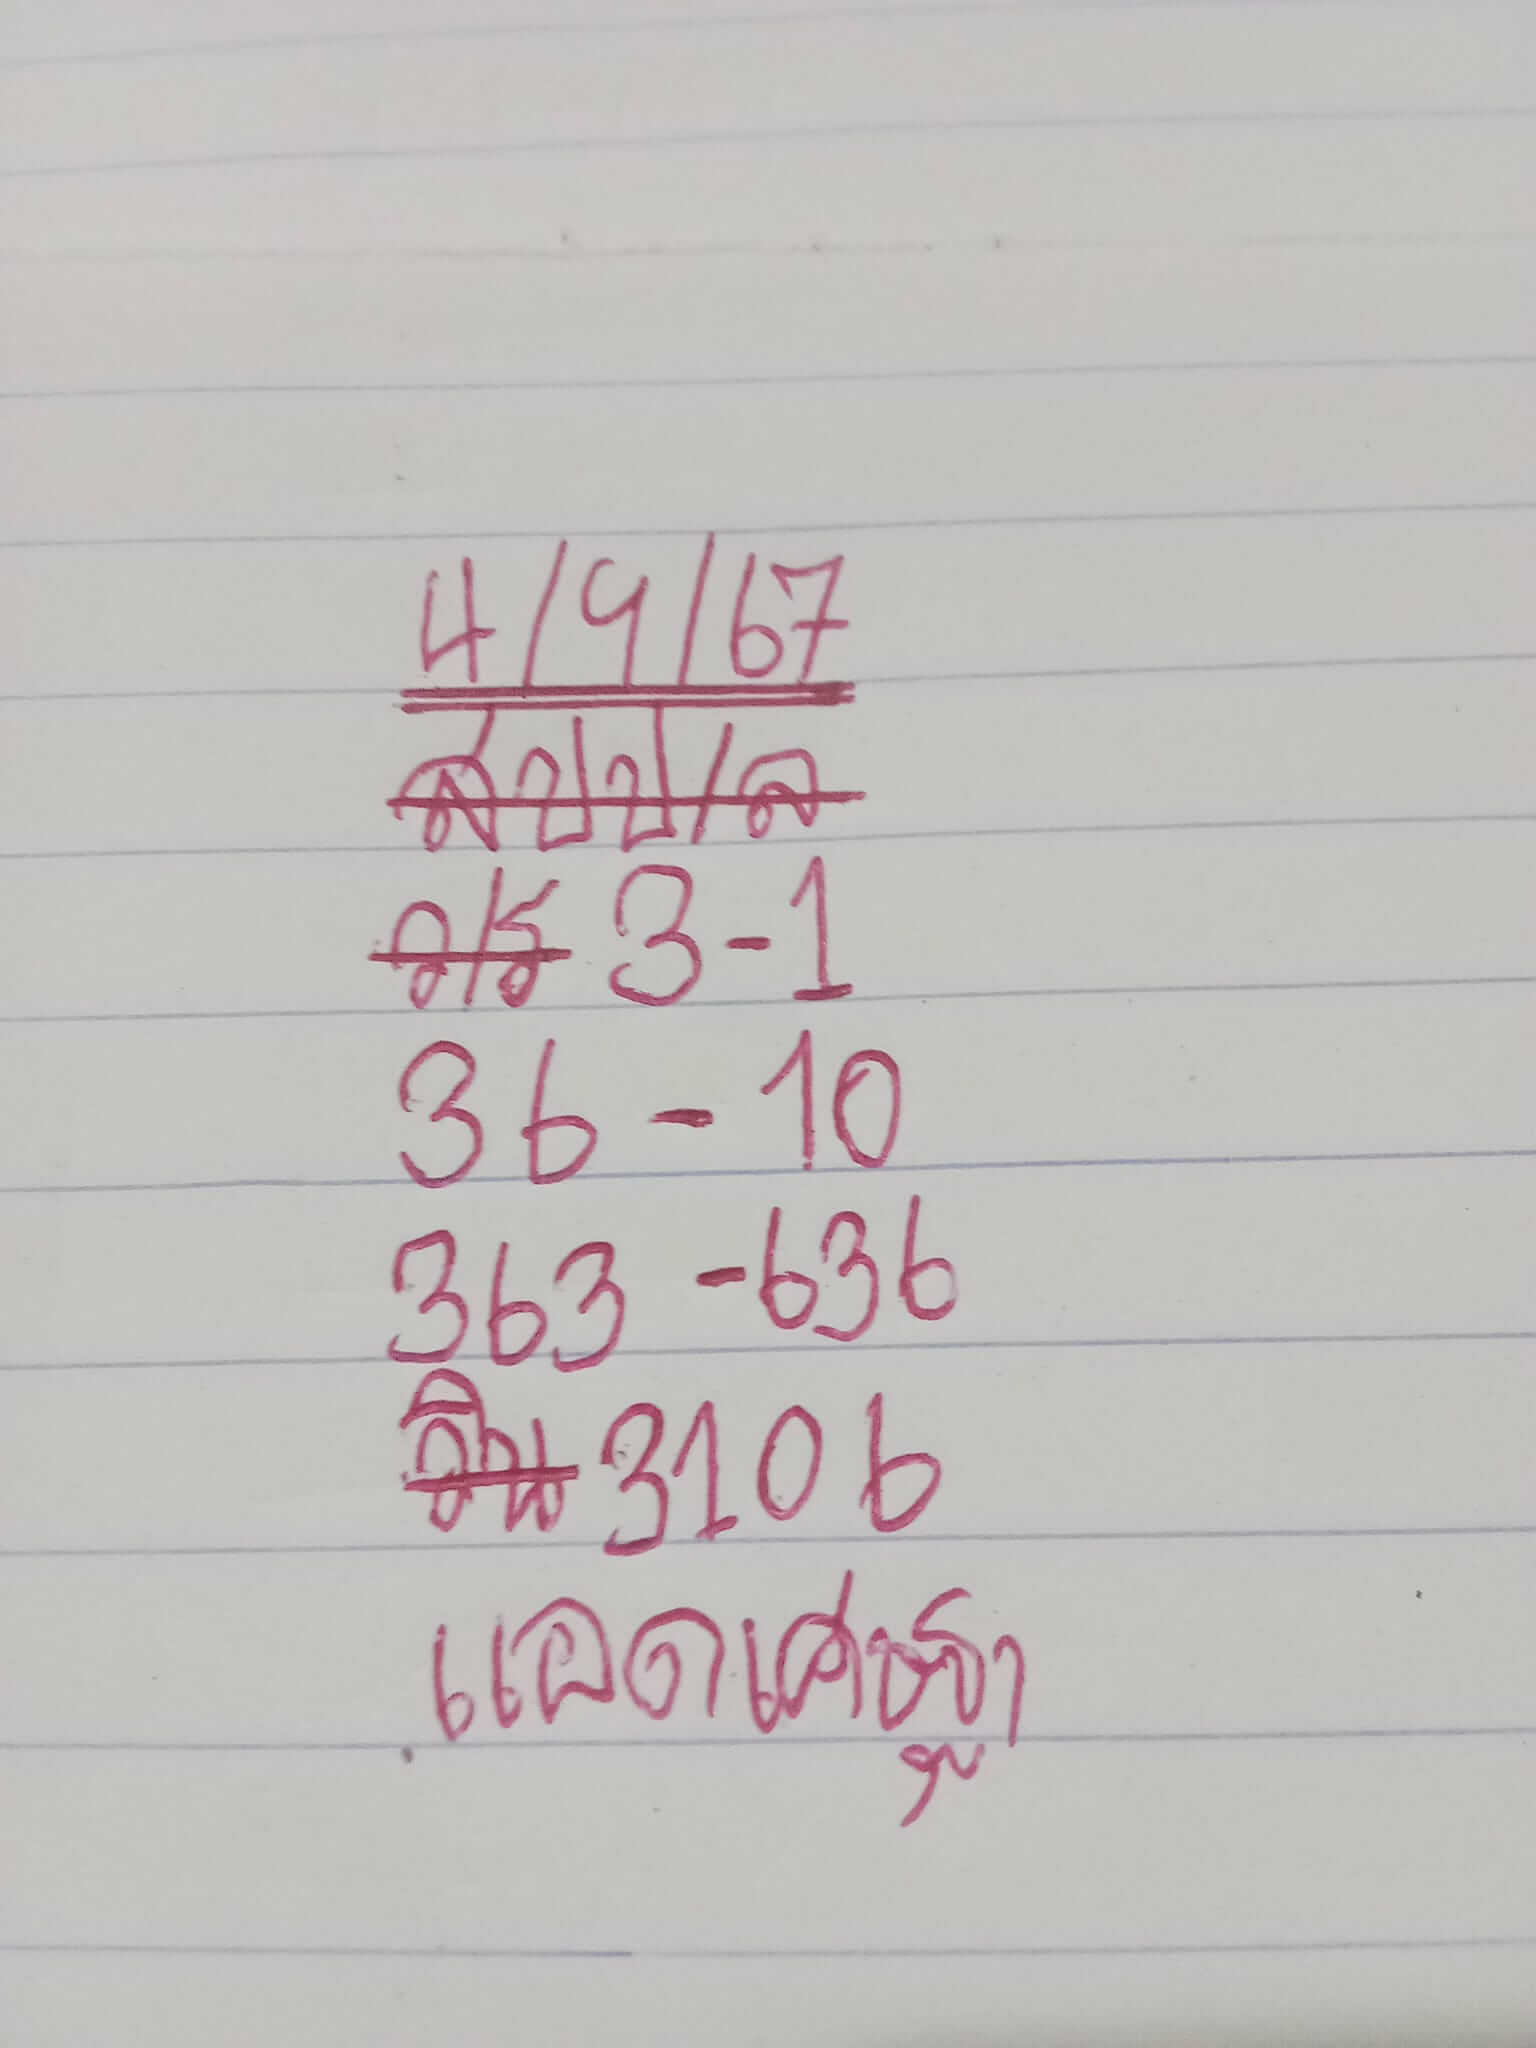 4/9/67
สปป/ล
ว/ร 3-1
36-10
363-636
วิน 3106
แอดเศษฐา